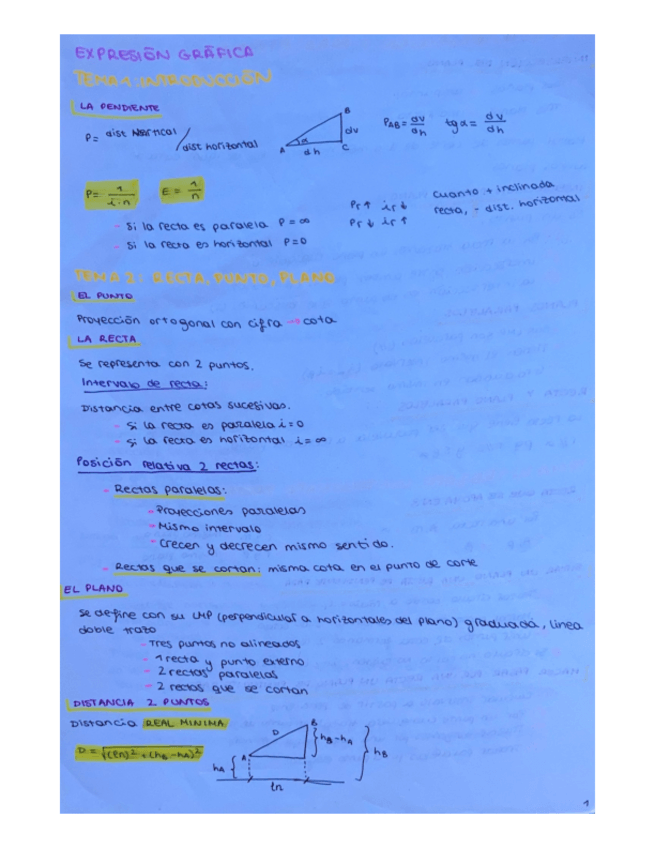 EXPRESIÓN GRÁFICA
TEMA 1: INTRODUCCIÓN
LA PENDIENTE
P= dist vertical / dist horizontal
B
dv
A
α
dh
C
PAB = dv/dh
tgα = dv/dh
P= 1/i·n
E = 1/n
Pr↑ ir↓
Pr↓ ir↑
cuanto + inclinada
recta, - dist. horizontal
- Si la recta es paralela P = ∞
- Si la recta es horizontal P=0
TEMA 2: RECTA, PUNTO, PLANO
EL PUNTO
Proyección ortogonal con cifra → cota
LA RECTA
Se representa con 2 puntos.
Intervalo de recta:
Distancia entre cotas sucesivas.
- Si la recta es paralela i=0
- Si la recta es horizontal i=∞
Posición relativa 2 rectas:
- Rectas paralelas:
- Proyecciones paralelas
- Mismo intervalo
- Crecen y decrecen mismo sentido.
- Rectas que se cortan: misma cota en el punto de corte
EL PLANO
Se define con su LMP (perpendicular a horizontales del plano) graduada, línea
doble trazo
- Tres puntos no alineados
- 1 recta y punto externo
- 2 rectas paralelas
- 2 rectas que se cortan
DISTANCIA 2 PUNTOS
Distancia REAL MINIMA
D = √(ln)² + (hB - hA)²
D
B
hB - hA
hB
A
hA
ln
1